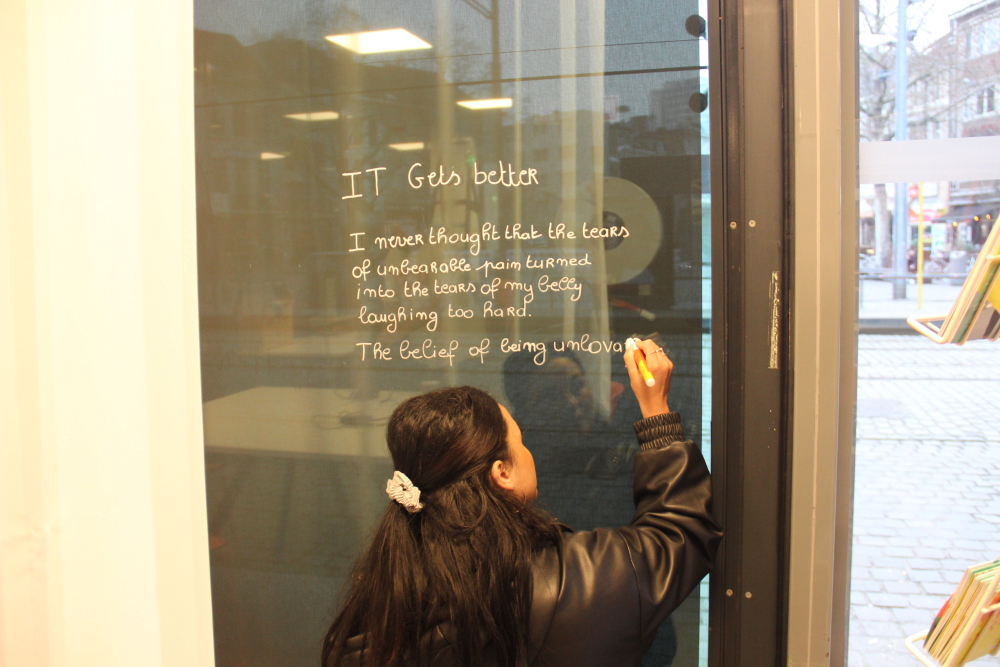 IT Gets better
I never thought that the tears
of unbearable pain turned
into the tears of my belly
laughing too hard.
The belief of being unlova